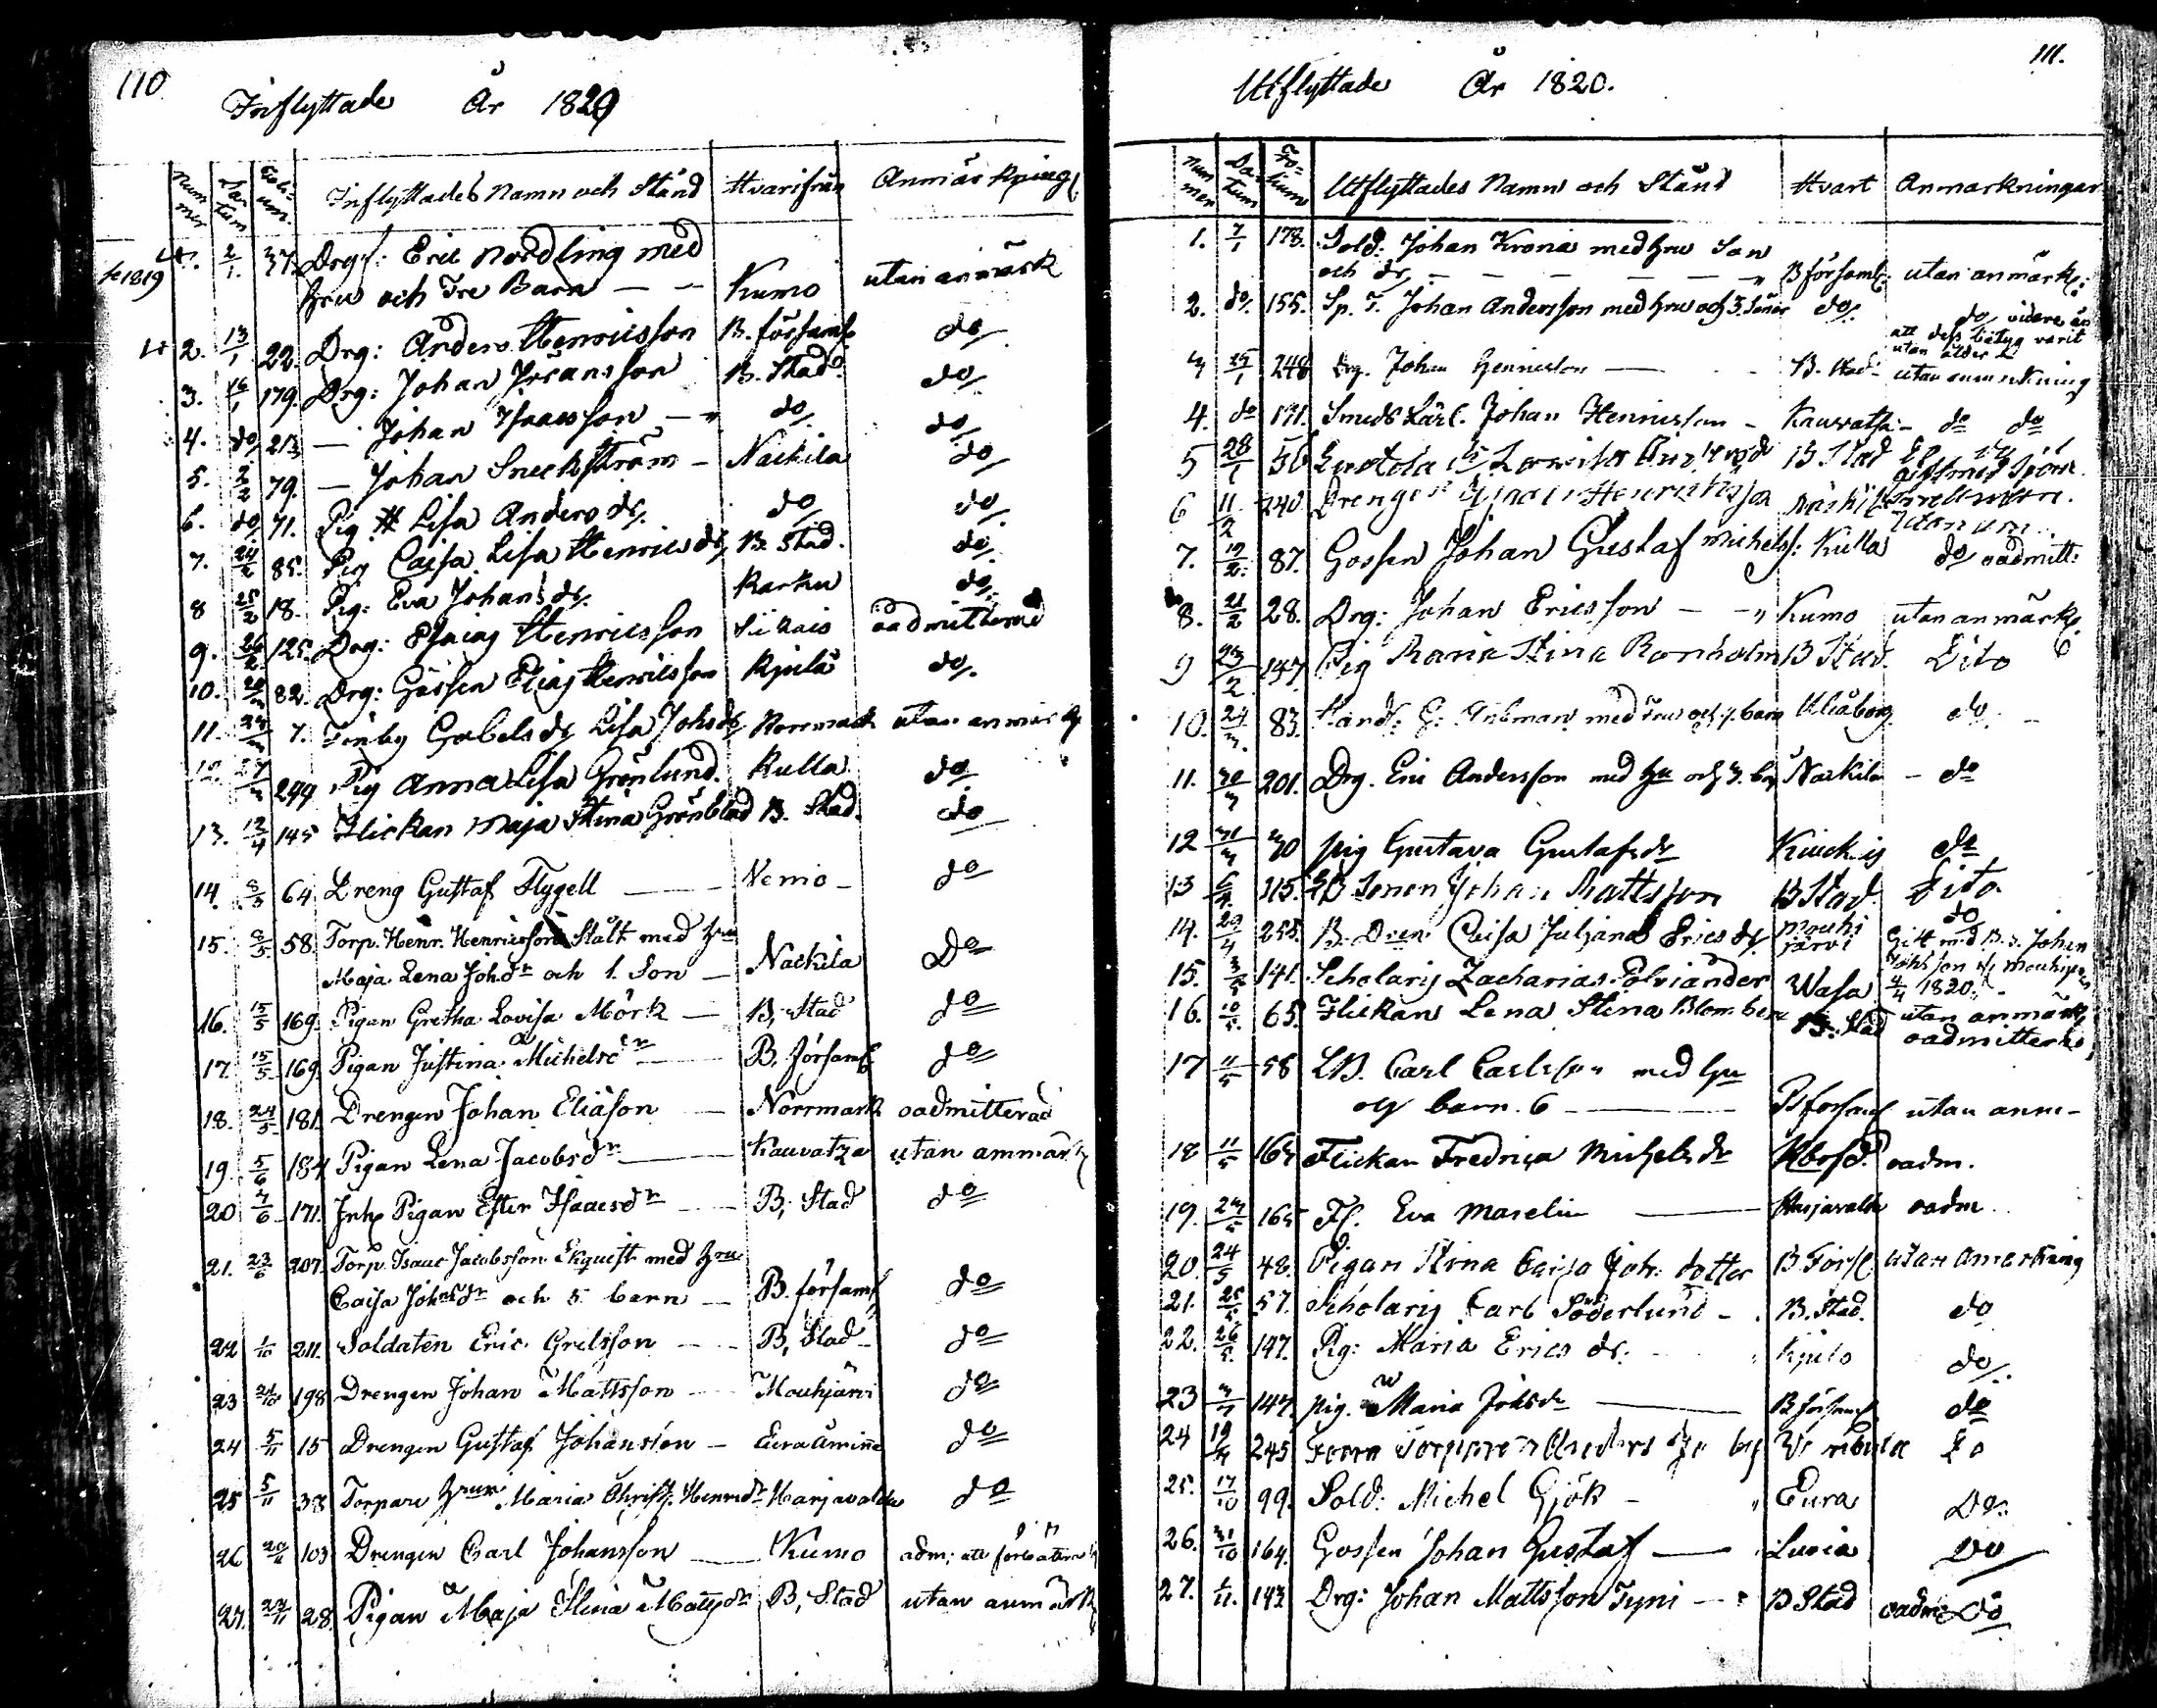 110
Inflyttade År 1820
Num mer Da tum Foli um. Inflyttades Namn och Stånd Hvarifrån Anmärkning
1. 2/1. 37. Drg: Eric Nordling med
hru och Tre Barn — — Kumo utan anmärk
1819
2. 13/1 22. Drg: Anders Henricsson B. församl do
3. 16/1 179. Drg: Johan Göransson B. Stad do
4. do 213 — Johan Isaacsson — do do
5. 2/2 79. — Johan Sneckström — Nackila do
6. do 71. Pig Lisa Anders dr. do do
7. 24/2 85. Pig Caisa Lisa Henrics dr B. Stad. do
8 25/2 18. Pig: Eva Johans dr. Karku do
9. 26/2 125. Drg: Esaias Henricsson Siikais oadmitterad
10. 82. Drg: Gossen Elias Henricsson Kjulå do.
11. 7. Gabels dr Lisa Johs dr Norrmark utan anmärk
12. 244 Pig Anna Lisa Grönlund. Kulla do
13. 12/4 145 Flickan Maja Stina Grönblad B. Stad. do
14. 64 Dreng Gustaf Flygell — Vemo — do
15. 58. Torp. Henr. Henricsson Stålt med hru
Maja Lena Joh.dr och 1. Son — Nackila Do
16. 15/5 169. Pigan Gretha Lovisa Mörk — B, Stad do
17. 15/5 169. Pigan Justina Michelsdr — B. församl do
18. 24/5 181. Drengen Johan Eliason — Norrmark oadmitterad
19. 5/6 184 Pigan Lena Jacobsdr — Kauvatza utan anmärk
20 7/6 171. Inh Pigan Ester Isaacsdr — B, Stad do
21. 23/6 207. Torp. Isaac Jacobsson Ekquist med hru
Caisa Johsdr och 5 barn — B. församl do
22 1/10 211. Soldaten Eric Grelsson — B, Stad do
23 198 Drengen Johan Mattsson — Mouhjärvi do
24 5/11 15 Drengen Gustaf Johansson — Euraåminne do
25 5/11 38 Torpare hrun Maria Christ. Henrsdr Harjavalda do
26 103 Drengen Carl Johansson — Kumo adm; att förbättra
27. 28. Pigan Maja Stina Matsdr B, Stad utan anmärk
111.
Utflyttade År 1820.
Num mer Da tum Fo- lium Utflyttades Namn och Stånd Hvart Anmärkningar
1. 7/1 178. Sold: Johan Krona med hru Son
och dr, — — — B församl: utan anmärk:
2. do 155. Sp. T. Johan Andersson med hru och 3. Söner do. do vidare än
att dess betyg varit
utan ålder
3 15/1 248 Drg. Johan Henricsson — B. Stad utan anmärkning
4. do 171. Smeds Lärl. Johan Henricsson — Kauvatsa — do do
5 28/1 56 B Stad
6 11/2 240. Drengen Henriksson
7. 19/2 87. Gossen Johan Gustaf Michels: Kulla do oadmitt:
8. 21/2 28. Drg: Johan Ericsson — Kumo utan anmärk
9 23/2 147 Pig Maria Stina Ronholm B Stad. Dito
10. 24/3. 83. med hru och 7. barn Uleåborg. do
11. 30/3 201. Drg. Eric Andersson med hu och 3. br Nackila — do
12 31/3 30 Pig Gustava Gustafsdr do
13 115. Sonen Johan Mattsson B Stad Dito.
14. 29/4 255. B. Dren Caisa Juliana Erics dr Mouhi järvi do
Gift med B. S. Johan
Johsson i Mouhijer
4/4 1820.
15. 3/5 141. Scholaris Zacharias Polviander Wasa utan anmärk
16. 10/5. 65. Flickan Lena Stina Blomberg B. Stad oadmitterad
17 11/5 58 LB. Carl Carlsson med hu
och barn. 6 — B församl utan anm-
18 11/5 164 Flickan Fredrica Michelsdr oadm.
19. 24/5 165 Fl. Eva Maselin — Harjavalda oadm
20. 24/5 48. Pigan Stina Caisa Joh. dotter B. Förs utan anmerkning
21. 25/5 57. Scholaris Carl Söderlund — B. Stad. do
22. 26/5. 147. Pig: Maria Erics dr. Kjulo do
23 147. Pig. Maria Johsdr — B församl do
24 19/9 245 Torpparen Anders do
25. 17/10 99. Sold: Michel Gjök — Eura Do:
26. 31/10 164. Gossen Johan Gustaf — Luvia Do
27. 1/11. 143 Drg: Johan Mattsson Tyni — B Stad oadm: Do